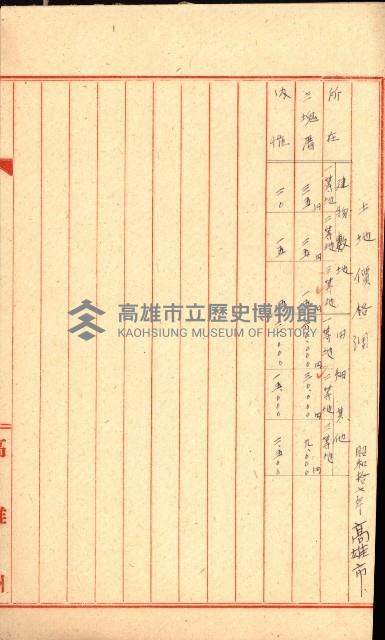 土地價格調
昭和拾七年 高雄市
所在
建物敷地
田畑其他
一等地
二等地
三等地
一等地
二等地
三等地
三塊厝
三五円
二五円
內惟
二〇
一五
高雄州
高雄市立歷史博物館
KAOHSIUNG MUSEUM OF HISTORY